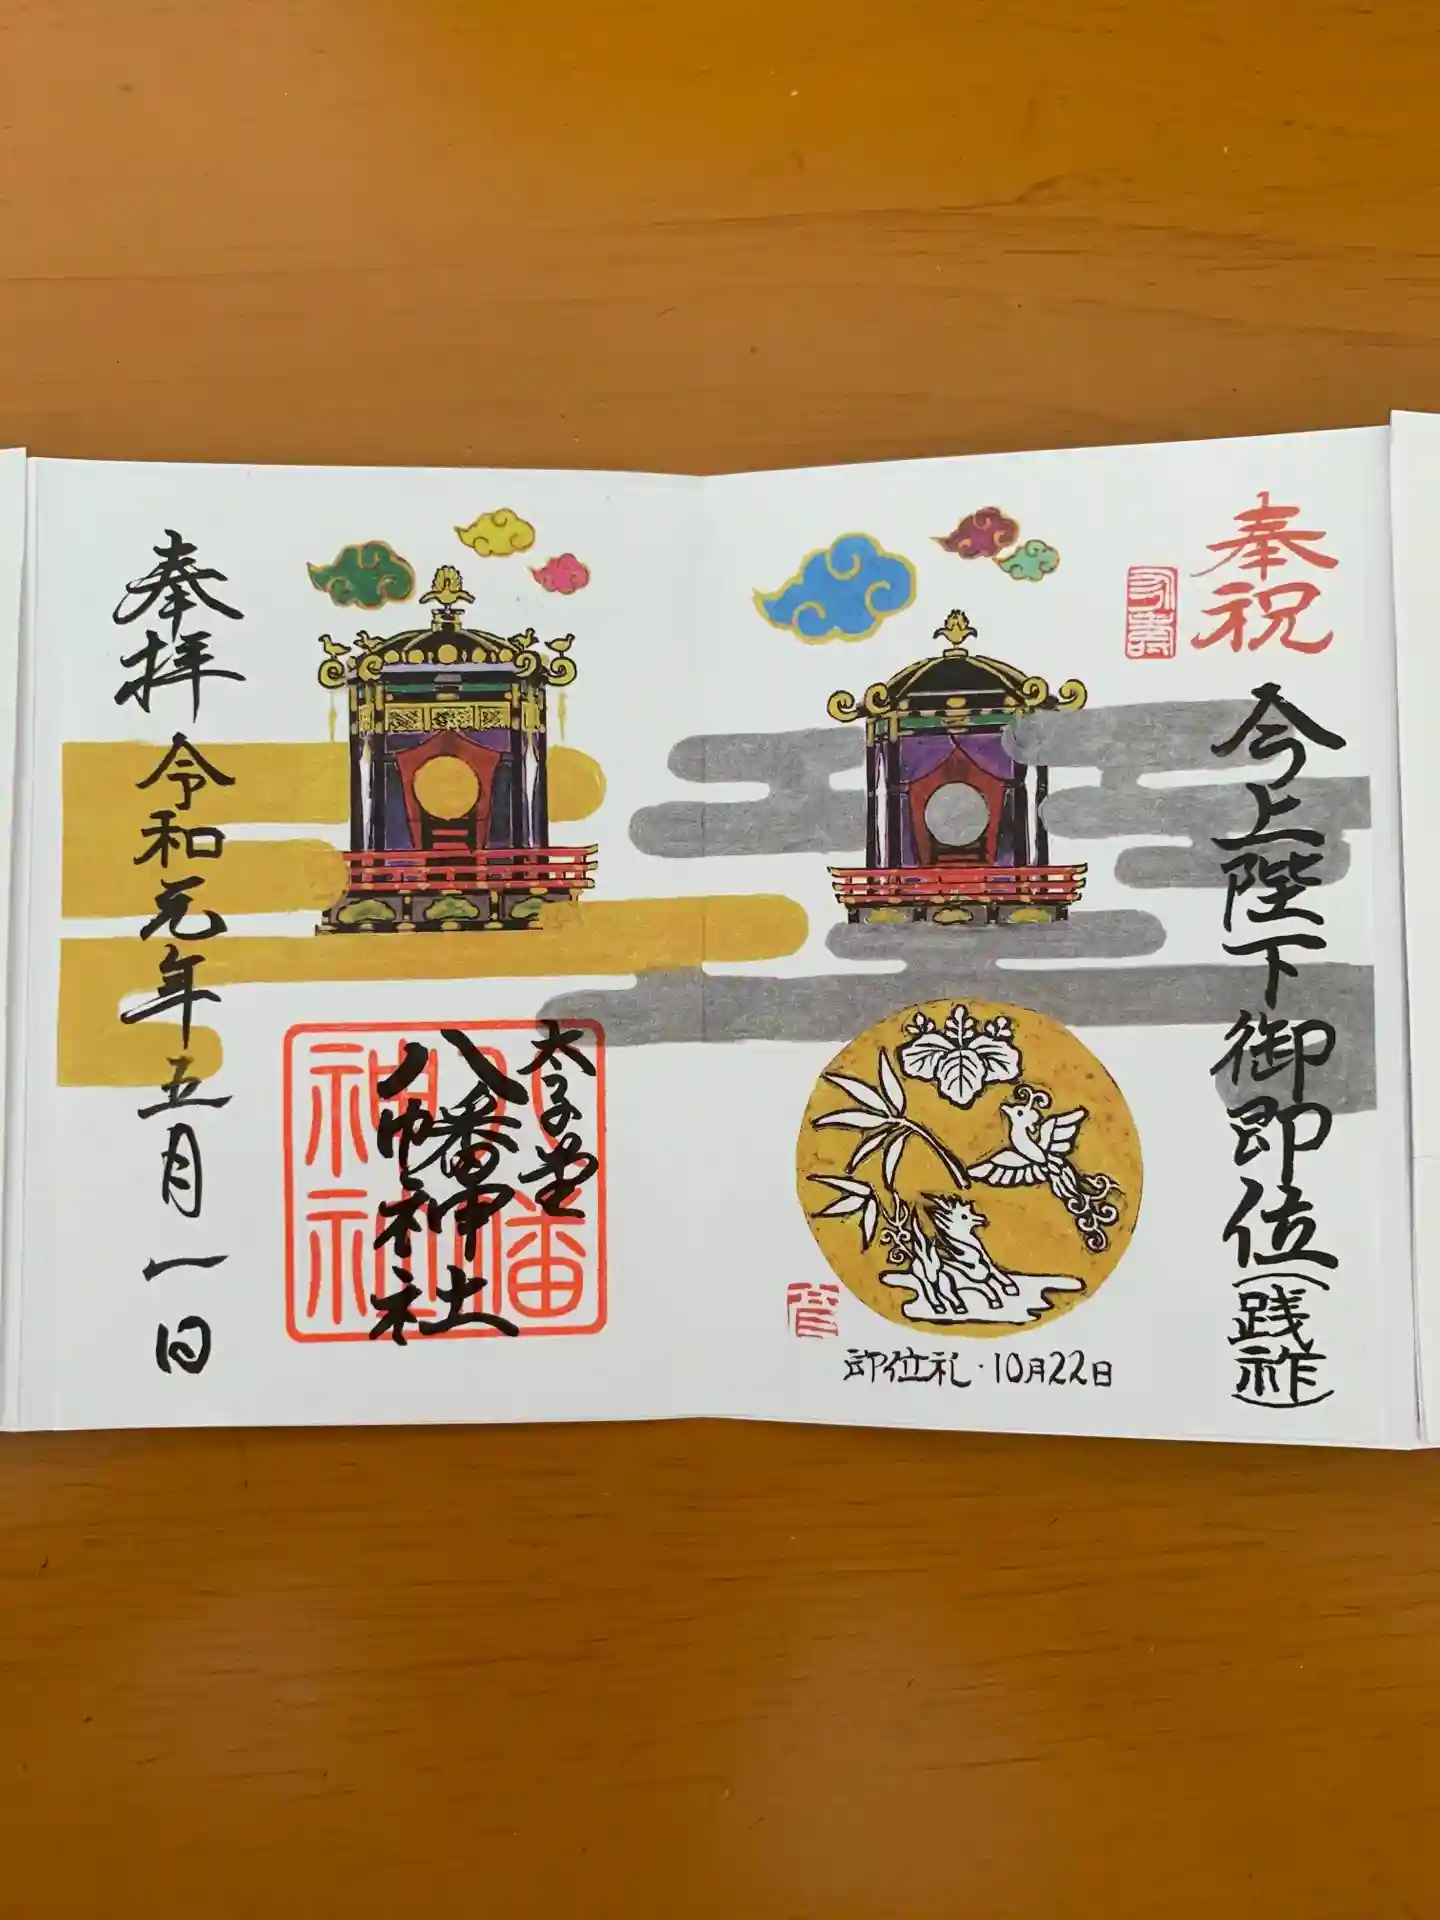 奉祝
今上陛下御即位(践祚)
即位礼・10月22日
太子堂
八幡神社
奉拝
令和元年五月一日